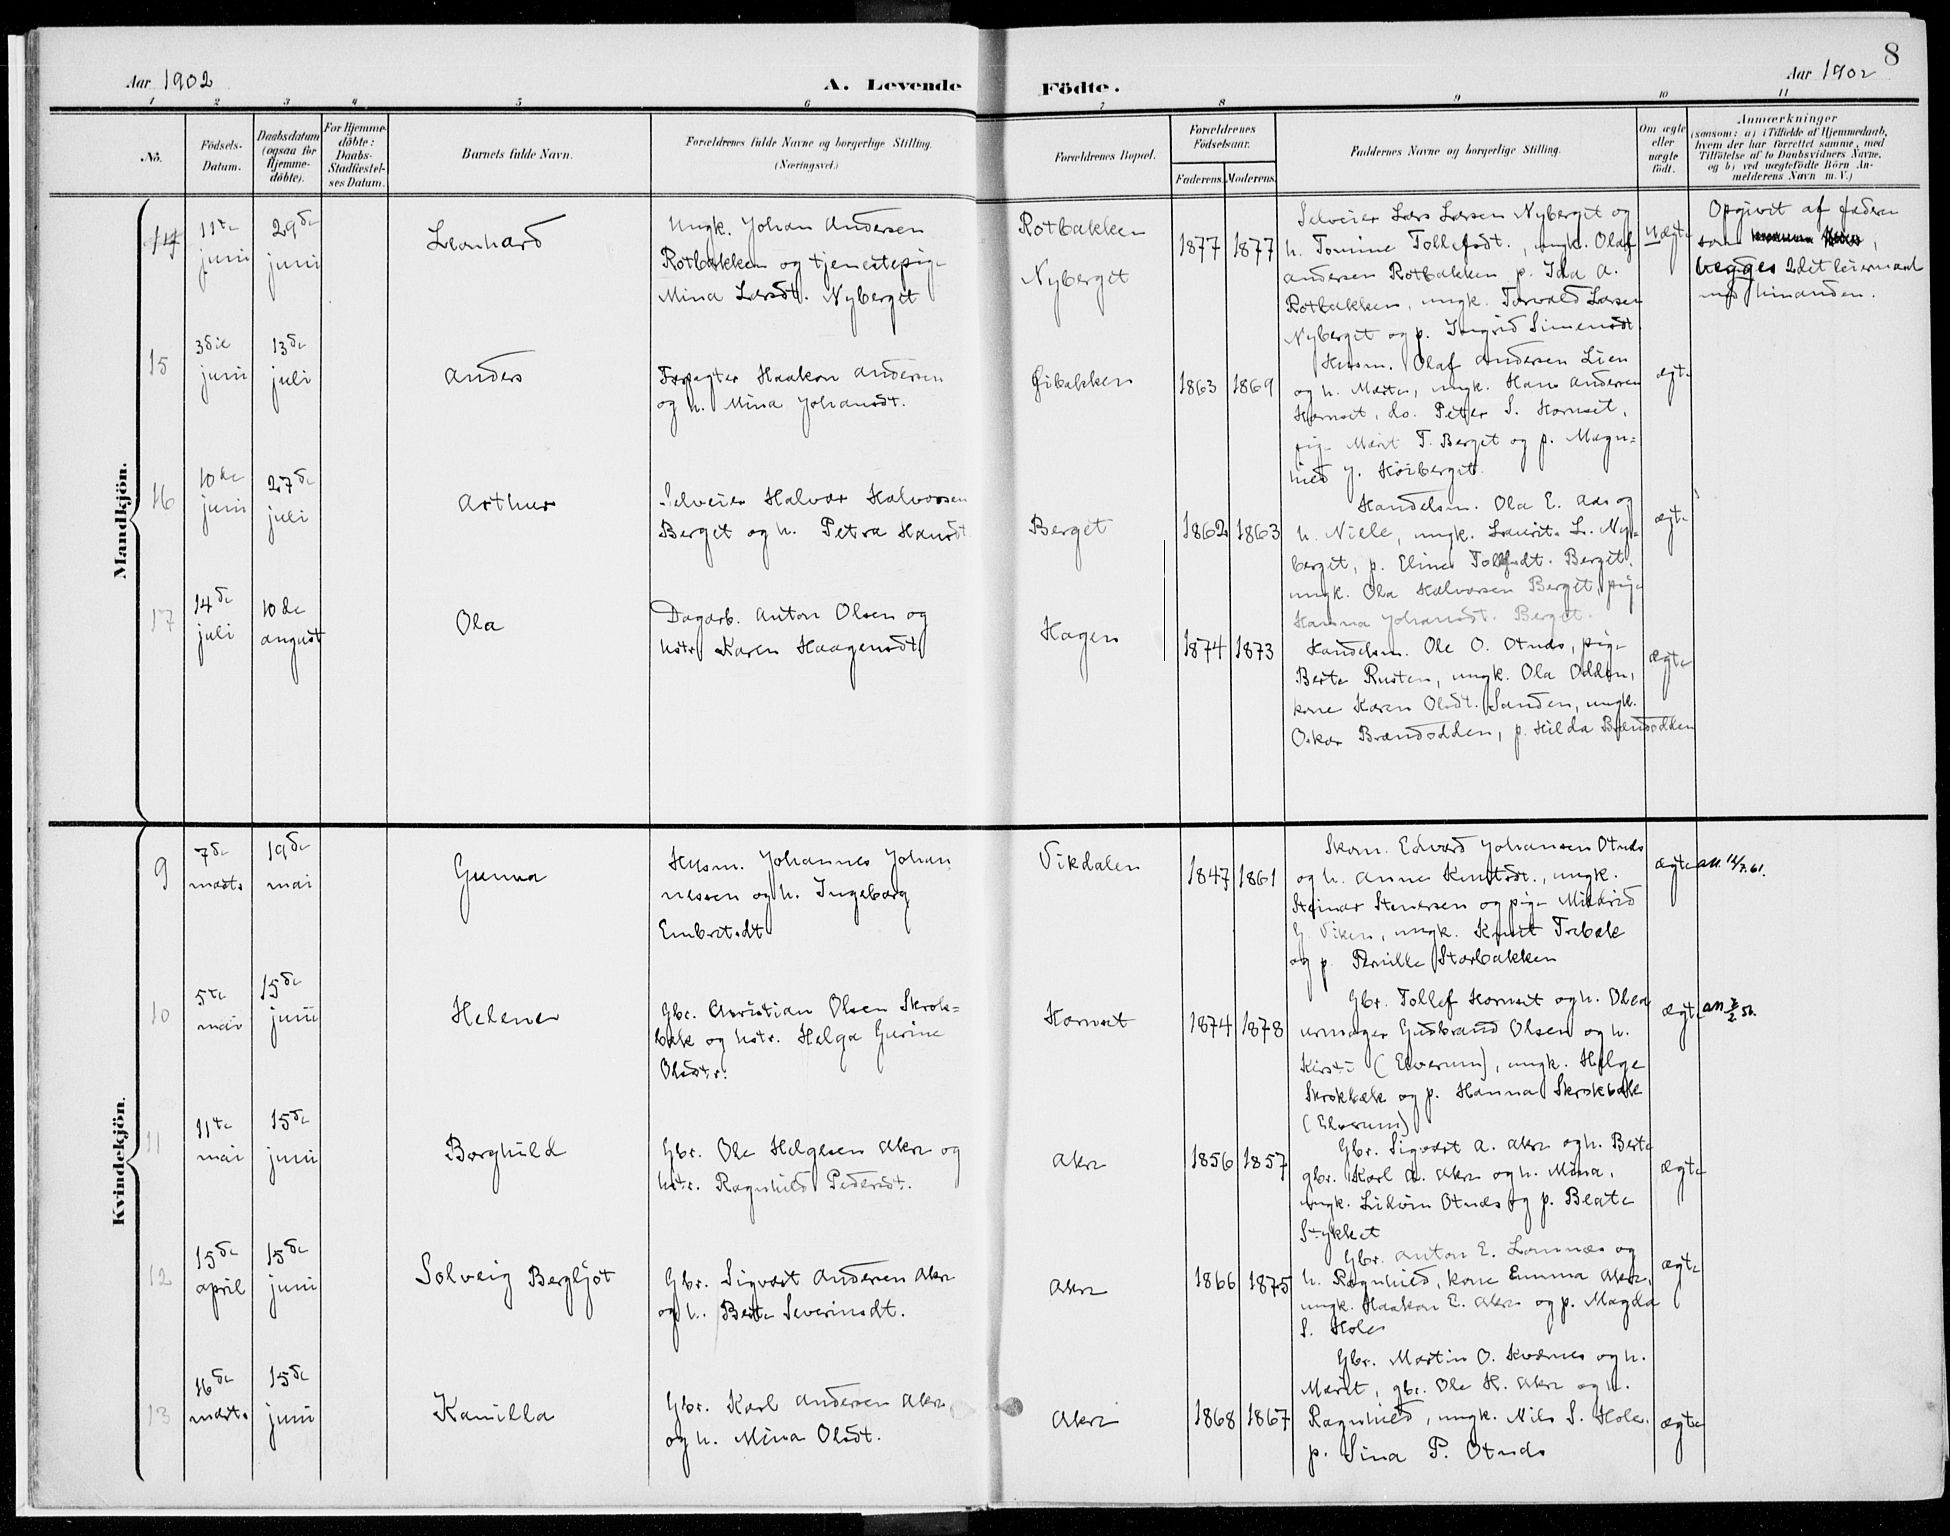 8
Aar 1902
A. Levende
Födte.
Aar 1902
1 2 3 4 5 6 7 8 9 10 11
No.
Födsels-
Datum.
Daabsdatum
(ogsaa for
Hjemme-
döbte).
For Hjemme-
döbte:
Daabs-
Stadfæstel-
ses Datum.
Barnets fulde Navn.
Forældrenes fulde Navne og borgerlige Stilling.
(Næringsvei.)
Forældrenes Bopæl.
Forældrenes
Födselsaar.
Faderens. Moderens.
Faddernes Navne og borgerlige Stilling.
Om ægte
eller
uægte
födt.
Anmærkninger
(saasom: a) i Tilfælde af Hjemmedaab,
hvem der har forrettet samme, med
Tilföielse af to Daabsvidners Navne,
og b) ved uægtefödte Börn An-
melderens Navn m. V.)
Mandkjön.
14
11te
juni
29de
juni
Leonhard
Ungk. Johan Andersen
Rotbakken og tjenestepige
Mina Larsdt. Nyberget
Rotbakken
Nyberget
1877 1877
Selveier Lars Larsen Nyberget og
h. Tomine Tollefsdt., ungk. Olaf
Andersen Rotbakken p. Ida A.
Rotbakken, ungk. Torvald Larsen
Nyberget og p. Ingrid Simensdt.
Uægte
Opgivet af faderen
som
begges 2det leiermaal
med hinanden.
15
3die
juni
13de
juli
Anders
Forpagter Haakon Andersen
og h. Mina Johansdt.
Øibakken
1863 1869
Husm. Olaf Andersen Lien
og h. Marte, ungk. Hans Andersen
Hornset, do. Peter S. Hornset,
pige Marit T. Berget og p. Magn=
hild J. Høiberget.
ægte
16
10de
juni
27de
juli
Arthur
Selveier Halvor Halvorsen
Berget og h. Petra Hansdt.
Berget
1862 1863
Handelsm. Ola E. Aas og
h. Nille, ungk. Laurits L. Ny=
berget, p. Eline Tollefsdt. Berget,
ungk. Ola Halvorsen Berget, pige
Hanna Johansdt. Berget.
ægte
17
14de
juli
10de
august
Ola
Dagarb. Anton Olsen og
hstr. Karen Haagensdt.
Hagen
1874 1873
Handelsm. Ole O. Otnes, pige
Berte Rusten, ungk. Ola Odden,
kone Karen Olsdt. Sanden, ungk.
Oskar Brændodden, p. Hilda Brændodden
ægte
Kvindekjön.
9
7de
marts
19de
mai
Gunna
Husm. Johannes Johan
nessen og h. Ingeborg
Embretsdt.
Vikdalen
1847 1861
Skom. Edvard Johansen Otnes
og h. Anne Knutsdt., ungk.
Steinar Stenersen og pige Mildrid
G. Viken, ungk. Knut Trebæk
og p. Pernille Storbakken
ægte
10
5te
mai
15de
juni
Helene
Gbr. Christian Olsen Skrok=
bæk og hstr. Helga Gurine
Olsdtr.
Hornset
1874 1878
Gbr. Tollef Hornset og h. Olea
urmager Gudbrand Olsen og h.
Kirsti (Elverum), ungk. Helge
Skrokbæk og p. Hanna Skrokbæk
(Elverum)
ægte
11
11te
mai
15de
juni
Borghild
Gbr. Ole Helgesen Akre og
hstr. Ragnhild Pedersdt.
Akre
1856 1857
Gbr. Sigvart A. Akre og h. Berte
gbr. Karl A. Akre og h. Mina,
ungk. Otnes og p. Beate
Stykket
ægte
12
15de
april
15de
juni
Solveig Bergljot
Gbr. Sigvart Andersen Akre
og h. Berte Severinsdt.
Akre
1866 1875
Gbr. Anton E. Lomnæs og
h. Ragnhild, kone Emma Akre,
ungk. Haakon E. Akre og p. Magda
S. Hole
ægte
13
16de
marts
15de
juni
Kamilla
Gbr. Karl Andersen Akre
og h. Mina Olsdt.
Akre
1868 1867
Gbr. Martin O. Kværnes og h.
Marit, gbr. Ole H. Akre og h.
Ragnhild, ungk. Nils S. Hole,
p. Sina P. Otnes
ægte